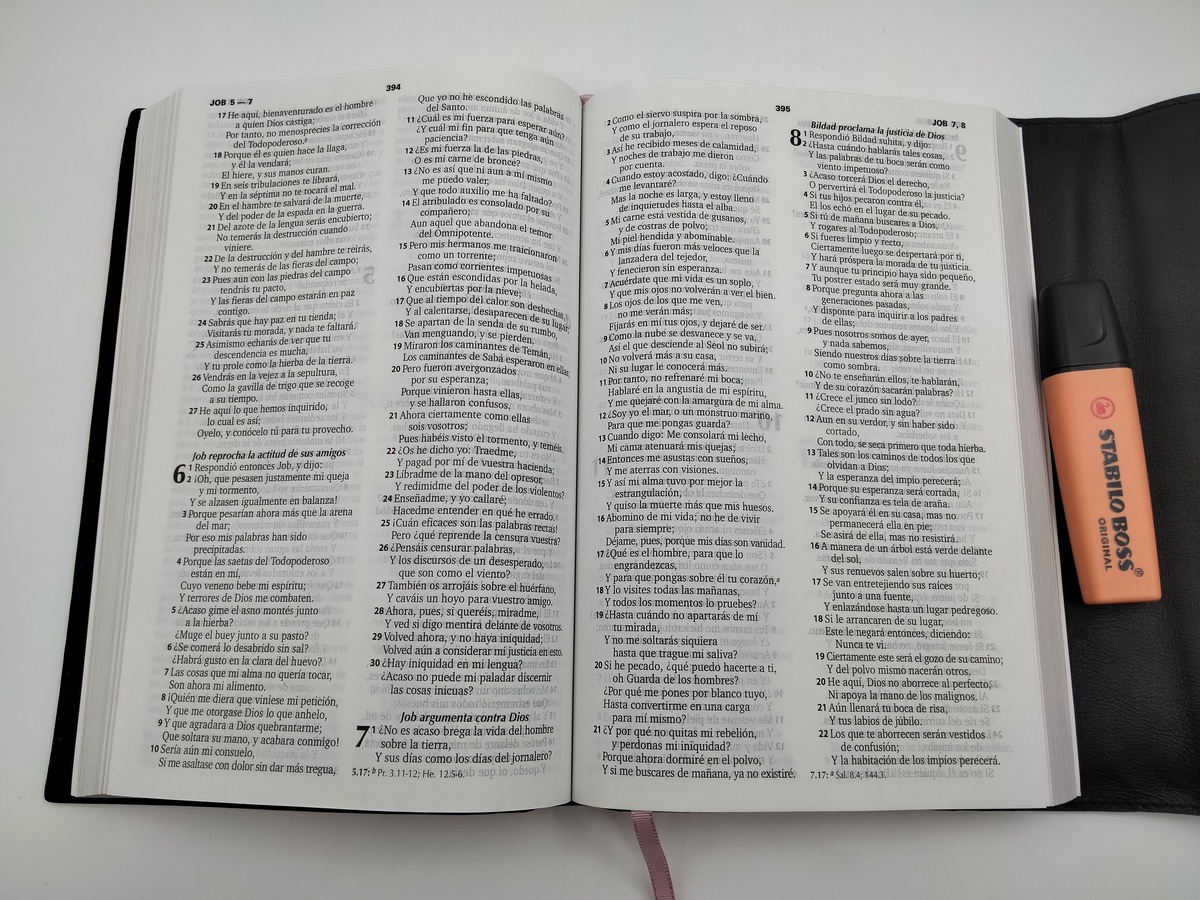 JOB 5 — 7
394
17 He aquí, bienaventurado es el hombre
a quien Dios castiga;
Por tanto, no menosprecies la corrección
del Todopoderoso.ᵃ
18 Porque él es quien hace la llaga,
y él la vendará;
El hiere, y sus manos curan.
19 En seis tribulaciones te librará,
Y en la séptima no te tocará el mal.
20 En el hambre te salvará de la muerte,
Y del poder de la espada en la guerra.
21 Del azote de la lengua serás encubierto;
No temerás la destrucción cuando
viniere.
22 De la destrucción y del hambre te reirás,
Y no temerás de las fieras del campo;
23 Pues aun con las piedras del campo
tendrás tu pacto,
Y las fieras del campo estarán en paz
contigo.
24 Sabrás que hay paz en tu tienda;
Visitarás tu morada, y nada te faltará.
25 Asimismo echarás de ver que tu
descendencia es mucha,
Y tu prole como la hierba de la tierra.
26 Vendrás en la vejez a la sepultura,
Como la gavilla de trigo que se recoge
a su tiempo.
27 He aquí lo que hemos inquirido,
lo cual es así;
Oyelo, y conócelo tú para tu provecho.
Job reprocha la actitud de sus amigos
6 1 Respondió entonces Job, y dijo:
2 ¡Oh, que pesasen justamente mi queja
y mi tormento,
Y se alzasen igualmente en balanza!
3 Porque pesarían ahora más que la arena
del mar;
Por eso mis palabras han sido
precipitadas.
4 Porque las saetas del Todopoderoso
están en mí,
Cuyo veneno bebe mi espíritu;
Y terrores de Dios me combaten.
5 ¿Acaso gime el asno montés junto
a la hierba?
¿Muge el buey junto a su pasto?
6 ¿Se comerá lo desabrido sin sal?
¿Habrá gusto en la clara del huevo?
7 Las cosas que mi alma no quería tocar,
Son ahora mi alimento.
8 ¡Quién me diera que viniese mi petición,
Y que me otorgase Dios lo que anhelo,
9 Y que agradara a Dios quebrantarme;
Que soltara su mano, y acabara conmigo!
10 Sería aún mi consuelo,
Si me asaltase con dolor sin dar más tregua,
Que yo no he escondido las palabras
del Santo.
11 ¿Cuál es mi fuerza para esperar aún?
¿Y cuál mi fin para que tenga aún
paciencia?
12 ¿Es mi fuerza la de las piedras,
O es mi carne de bronce?
13 ¿No es así que ni aun a mí mismo
me puedo valer,
Y que todo auxilio me ha faltado?
14 El atribulado es consolado por su
compañero;
Aun aquel que abandona el temor
del Omnipotente.
15 Pero mis hermanos me traicionaron
como un torrente;
Pasan como corrientes impetuosas
16 Que están escondidas por la helada,
Y encubiertas por la nieve;
17 Que al tiempo del calor son deshechas,
Y al calentarse, desaparecen de su lugar;
18 Se apartan de la senda de su rumbo,
Van menguando, y se pierden.
19 Miraron los caminantes de Temán,
Los caminantes de Sabá esperaron en ellas;
20 Pero fueron avergonzados
por su esperanza;
Porque vinieron hasta ellas,
y se hallaron confusos.
21 Ahora ciertamente como ellas
sois vosotros;
Pues habéis visto el tormento, y teméis.
22 ¿Os he dicho yo: Traedme,
Y pagad por mí de vuestra hacienda;
23 Libradme de la mano del opresor,
Y redimidme del poder de los violentos?
24 Enseñadme, y yo callaré;
Hacedme entender en qué he errado.
25 ¡Cuán eficaces son las palabras rectas!
Pero ¿qué reprende la censura vuestra?
26 ¿Pensáis censurar palabras,
Y los discursos de un desesperado,
que son como el viento?
27 También os arrojáis sobre el huérfano,
Y caváis un hoyo para vuestro amigo.
28 Ahora, pues, si queréis, miradme,
Y ved si digo mentira delante de vosotros.
29 Volved ahora, y no haya iniquidad;
Volved aún a considerar mi justicia en esto.
30 ¿Hay iniquidad en mi lengua?
¿Acaso no puede mi paladar discernir
las cosas inicuas?
Job argumenta contra Dios
7 1 ¿No es acaso brega la vida del hombre
sobre la tierra,
Y sus días como los días del jornalero?
5.17: ᵇ Pr. 3.11-12; He. 12.5-6.
395
JOB 7, 8
2 Como el siervo suspira por la sombra,
Y como el jornalero espera el reposo
de su trabajo,
3 Así he recibido meses de calamidad,
Y noches de trabajo me dieron
por cuenta.
4 Cuando estoy acostado, digo: ¿Cuándo
me levantaré?
Mas la noche es larga, y estoy lleno
de inquietudes hasta el alba.
5 Mi carne está vestida de gusanos,
y de costras de polvo;
Mi piel hendida y abominable.
6 Y mis días fueron más veloces que la
lanzadera del tejedor,
Y fenecieron sin esperanza.
7 Acuérdate que mi vida es un soplo,
Y que mis ojos no volverán a ver el bien.
8 Los ojos de los que me ven,
no me verán más;
Fijarás en mí tus ojos, y dejaré de ser.
9 Como la nube se desvanece y se va,
Así el que desciende al Seol no subirá;
10 No volverá más a su casa,
Ni su lugar le conocerá más.
11 Por tanto, no refrenaré mi boca;
Hablaré en la angustia de mi espíritu,
Y me quejaré con la amargura de mi alma.
12 ¿Soy yo el mar, o un monstruo marino,
Para que me pongas guarda?
13 Cuando digo: Me consolará mi lecho,
Mi cama atenuará mis quejas;
14 Entonces me asustas con sueños,
Y me aterras con visiones.
15 Y así mi alma tuvo por mejor la
estrangulación,
Y quiso la muerte más que mis huesos.
16 Abomino de mi vida; no he de vivir
para siempre;
Déjame, pues, porque mis días son vanidad.
17 ¿Qué es el hombre, para que lo
engrandezcas,
Y para que pongas sobre él tu corazón,ᵃ
18 Y lo visites todas las mañanas,
Y todos los momentos lo pruebes?
19 ¿Hasta cuándo no apartarás de mí
tu mirada,
Y no me soltarás siquiera
hasta que trague mi saliva?
20 Si he pecado, ¿qué puedo hacerte a ti,
oh Guarda de los hombres?
¿Por qué me pones por blanco tuyo,
Hasta convertirme en una carga
para mí mismo?
21 ¿Y por qué no quitas mi rebelión,
y perdonas mi iniquidad?
Porque ahora dormiré en el polvo,
Y si me buscares de mañana, ya no existiré.
Bildad proclama la justicia de Dios
8 1 Respondió Bildad suhita, y dijo:
2 ¿Hasta cuándo hablarás tales cosas,
Y las palabras de tu boca serán como
viento impetuoso?
3 ¿Acaso torcerá Dios el derecho,
O pervertirá el Todopoderoso la justicia?
4 Si tus hijos pecaron contra él,
El los echó en el lugar de su pecado.
5 Si tú de mañana buscares a Dios,
Y rogares al Todopoderoso;
6 Si fueres limpio y recto,
Ciertamente luego se despertará por ti,
Y hará próspera la morada de tu justicia.
7 Y aunque tu principio haya sido pequeño,
Tu postrer estado será muy grande.
8 Porque pregunta ahora a las
generaciones pasadas,
Y disponte para inquirir a los padres
de ellas;
9 Pues nosotros somos de ayer,
y nada sabemos,
Siendo nuestros días sobre la tierra
como sombra.
10 ¿No te enseñarán ellos, te hablarán,
Y de su corazón sacarán palabras?
11 ¿Crece el junco sin lodo?
¿Crece el prado sin agua?
12 Aun en su verdor, y sin haber sido
cortado,
Con todo, se seca primero que toda hierba.
13 Tales son los caminos de todos los que
olvidan a Dios;
Y la esperanza del impío perecerá;
14 Porque su esperanza será cortada,
Y su confianza es tela de araña.
15 Se apoyará él en su casa, mas no
permanecerá ella en pie;
Se asirá de ella, mas no resistirá.
16 A manera de un árbol está verde delante
del sol,
Y sus renuevos salen sobre su huerto;
17 Se van entretejiendo sus raíces
junto a una fuente,
Y enlazándose hasta un lugar pedregoso.
18 Si le arrancaren de su lugar,
Este le negará entonces, diciendo:
Nunca te vi.
19 Ciertamente este será el gozo de su camino;
Y del polvo mismo nacerán otros.
20 He aquí, Dios no aborrece al perfecto,
Ni apoya la mano de los malignos.
21 Aún llenará tu boca de risa,
Y tus labios de júbilo.
22 Los que te aborrecen serán vestidos
de confusión;
Y la habitación de los impíos perecerá.
7.17: ᵃ Sal. 8.4; 144.3.
STABILO BOSS®
ORIGINAL